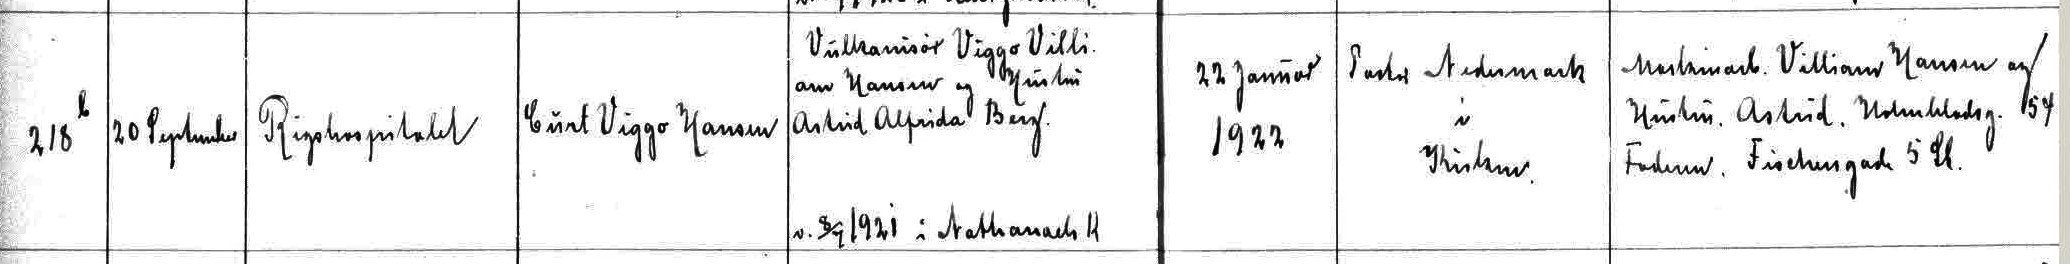 218 b
20 September
Rigshospitalet
Curt Viggo Hansen
Vulkanisør Viggo Villi-
am Hansen og Hustru
Astrid Alfrida Berg.
v. 8/9 1921 i Nathanaels K
22 Januar
1922
Pastor Nedermark
i
Kirken.
Maskinarb. Villiam Hansen og
Hustru. Astrid. Holmbladsg. 54
Faderen. Fischersgade 5 St.